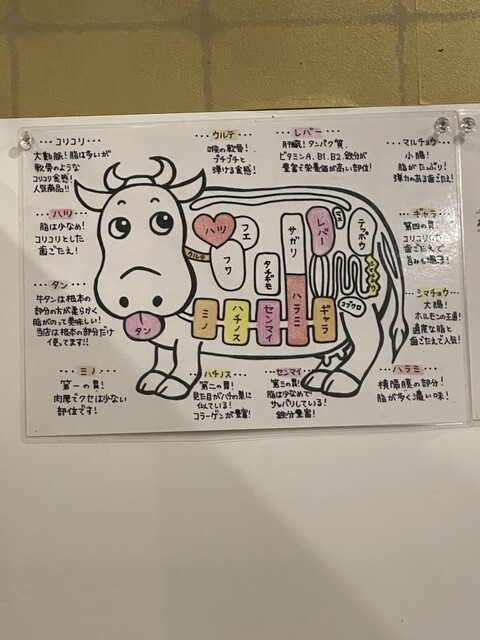 コリコリ
大動脈！脂は多いが
軟骨のような
コリコリ食感！
人気商品!!
ウルテ
喉の軟骨！
プチプチと
弾ける食感！
レバー
肝臓！タンパク質、
ビタミンA、B1、B2、鉄分が
豊富で栄養価が高い部位！
マルチョウ
小腸！
脂がたっぷり！
弾力のある歯ごたえ！
ハツ
脂は少なめ！
コリコリとした
歯ごたえ！
ギャラ
第四の胃！
歯ごたえで
旨みも濃厚！
タン
牛タンは根本の
部分の方が柔らかく
脂がのって美味しい！
当店は根本の部分だけ
使ってます!!
シマチョウ
大腸！
ホルモンの王道！
適度な脂と
歯ごたえで人気！
ミノ
第一の胃！
肉厚でクセは少ない
部位です！
ハチノス
第二の胃！
見た目がハチの巣に
似ている！
コラーゲンが豊富！
センマイ
第三の胃！
脂は少なめで
サッパリしている！
鉄分豊富！
ハラミ
横隔膜の部分！
脂が多く濃い味！
ハツ
フエ
フワ
ウルテ
タチギモ
サガリ
ハラミ
レバー
マメ
テッポウ
コブクロ
ミノ
ハチノス
センマイ
ギャラ
タン